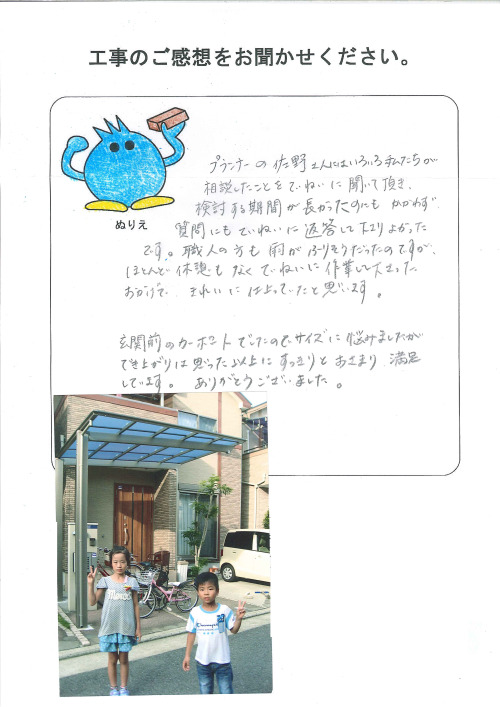 工事のご感想をお聞かせください。
ぬりえ
プランナーの佐野さんにはいろいろ私たちが
相談したことをていねいに聞いて頂き、
検討する期間が長かったのにもかかわらず
質問にもていねいに返答して下さりよかった
です。職人の方も雨がふりそうだったのですが、
ほとんど休憩もなくていねいに作業して下さった
おかげで、きれいに仕上っていたと思います。
玄関前のカーポートでしたのでサイズに悩みましたが
でき上がりは思った以上にすっきりとおさまり満足
しています。ありがとうございました。